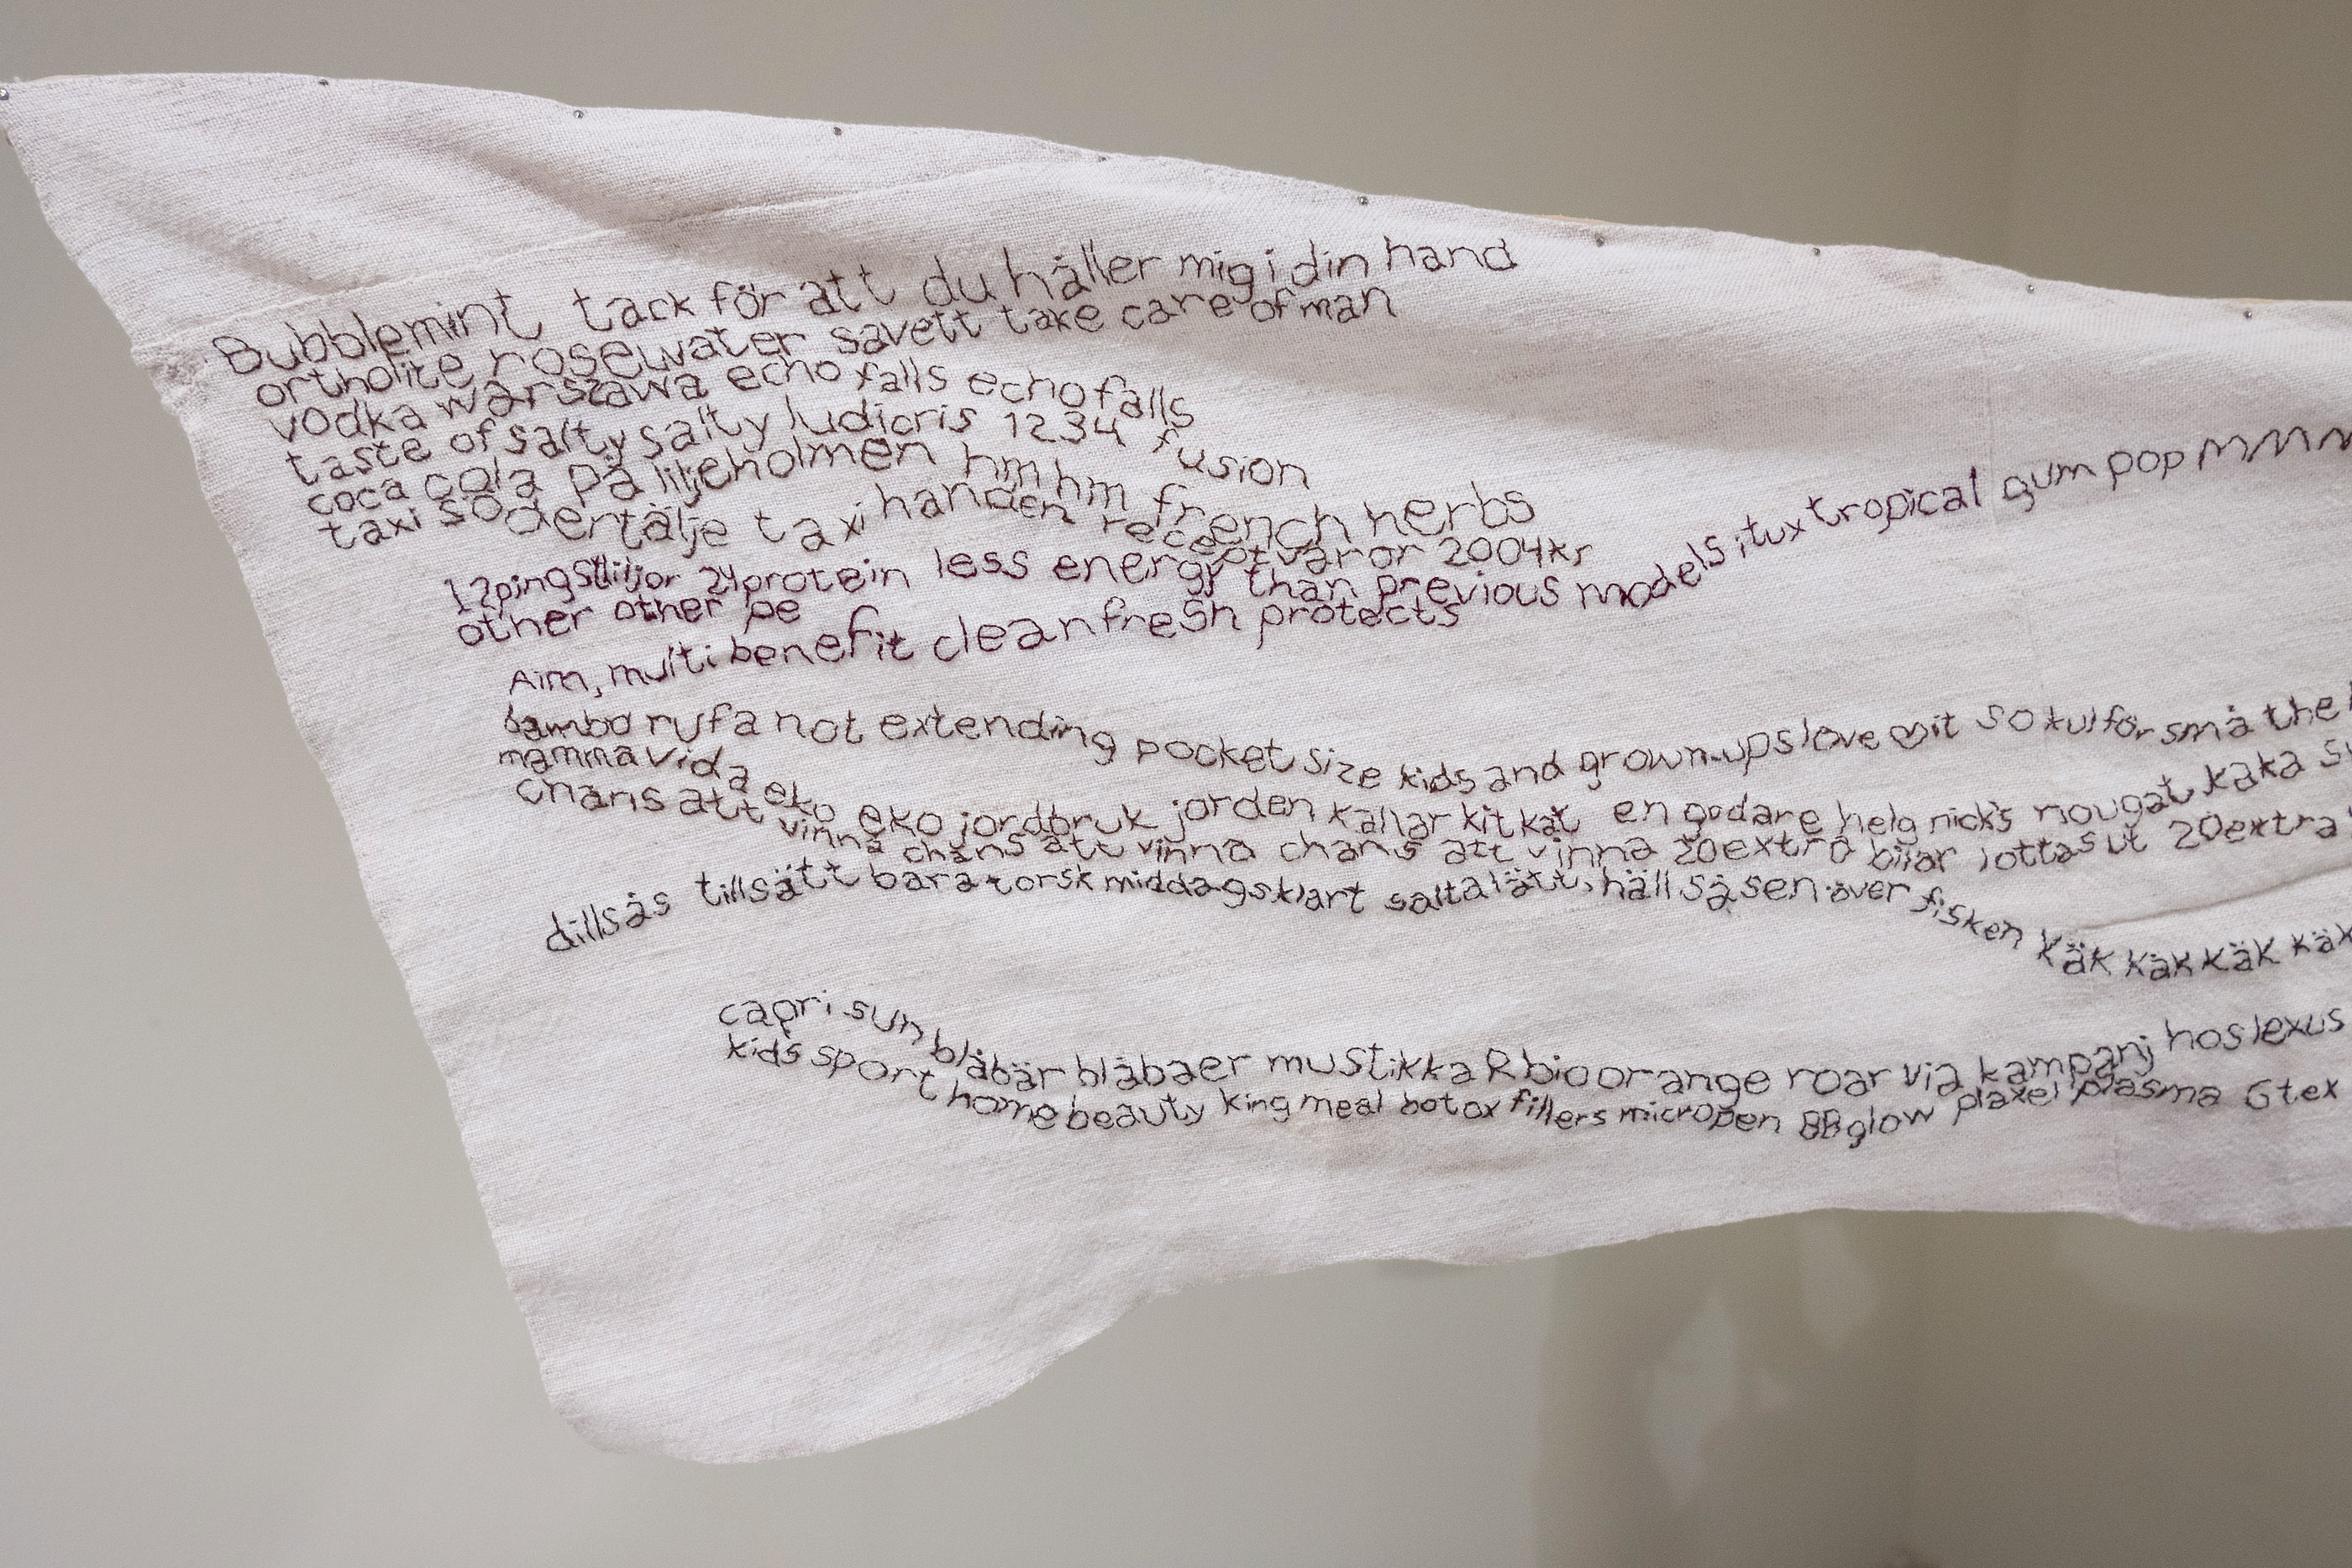 Bubblemint tack för att du håller mig i din hand
ortholite rosewater savett take care of man
vodka warszawa echo falls echo falls
taste of salty salty ludicris 1234 fusion
coca cola på liljeholmen hm hm french herbs
taxi södertälje taxi handen receptvaror 2004kr
12pingstliljor 24protein less energy than previous models itux tropical gum pop mmm
other other pe
Aim, multi benefit clean fresh protects
bambo rufa not extending pocket size kids and grown-ups love it so kul för små the
mamma vida eko eko jordbruk jorden källar kit kat en godare helg nick's nougat kaka
chans att vinna chans att vinna chans att vinna 20extra bilar lottas ut 20extra
dillsås tillsätt bara torsk middagsklart salta lätt, häll såsen över fisken käk käk käk käk
capri sun blåbär blåbaer mustikka R bio orange roar via kampanj hos lexus
kids sport home beauty king meal botox fillers micropen BB glow plaxel plasma Gtex